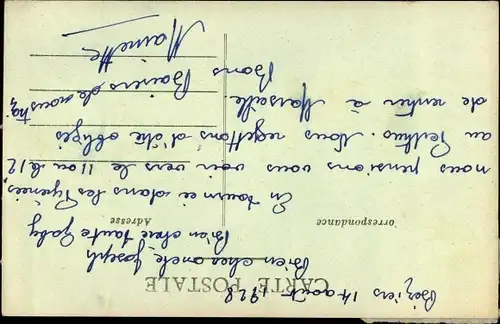 Béziers 14 août 1928
CARTE POSTALE
Bien cher oncle Joseph
Bien chère tante Gaby
Correspondance
Adresse
En tournée dans les Pyrénées,
nous pensions vous voir vers le 11 ou le 12
au Perthus. Nous regettons d'être obligés
de rentrer à Marseille.
Bons
Baisers de nous trois
Mainette